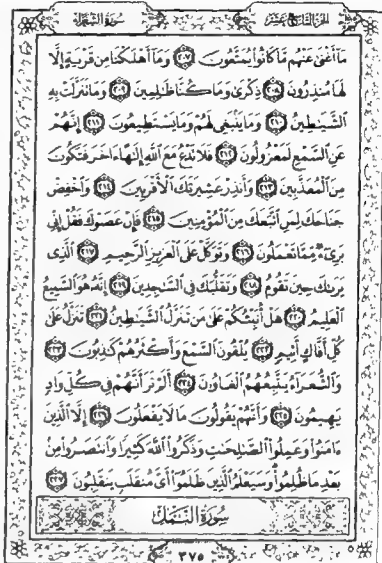 الجزء التاسع عشر سورة الشعراء
مَآ أَغْنَىٰ عَنْهُم مَّا كَانُوا۟ يُمَتَّعُونَ ٢٠٧ وَمَآ أَهْلَكْنَا مِن قَرْيَةٍ إِلَّا
لَهَا مُنذِرُونَ ٢٠٨ ذِكْرَىٰ وَمَا كُنَّا ظَٰلِمِينَ ٢٠٩ وَمَا تَنَزَّلَتْ بِهِ
ٱلشَّيَٰطِينُ ٢١٠ وَمَا يَنۢبَغِى لَهُمْ وَمَا يَسْتَطِيعُونَ ٢١١ إِنَّهُمْ
عَنِ ٱلسَّمْعِ لَمَعْزُولُونَ ٢١٢ فَلَا تَدْعُ مَعَ ٱللَّهِ إِلَٰهًا ءَاخَرَ فَتَكُونَ
مِنَ ٱلْمُعَذَّبِينَ ٢١٣ وَأَنذِرْ عَشِيرَتَكَ ٱلْأَقْرَبِينَ ٢١٤ وَٱخْفِضْ
جَنَاحَكَ لِمَنِ ٱتَّبَعَكَ مِنَ ٱلْمُؤْمِنِينَ ٢١٥ فَإِنْ عَصَوْكَ فَقُلْ إِنِّى
بَرِىٓءٌ مِّمَّا تَعْمَلُونَ ٢١٦ وَتَوَكَّلْ عَلَى ٱلْعَزِيزِ ٱلرَّحِيمِ ٢١٧ ٱلَّذِى
يَرَىٰكَ حِينَ تَقُومُ ٢١٨ وَتَقَلُّبَكَ فِى ٱلسَّٰجِدِينَ ٢١٩ إِنَّهُۥ هُوَ ٱلسَّمِيعُ
ٱلْعَلِيمُ ٢٢٠ هَلْ أُنَبِّئُكُمْ عَلَىٰ مَن تَنَزَّلُ ٱلشَّيَٰطِينُ ٢٢١ تَنَزَّلُ عَلَىٰ
كُلِّ أَفَّاكٍ أَثِيمٍ ٢٢٢ يُلْقُونَ ٱلسَّمْعَ وَأَكْثَرُهُمْ كَٰذِبُونَ ٢٢٣
وَٱلشُّعَرَآءُ يَتَّبِعُهُمُ ٱلْغَاوُۥنَ ٢٢٤ أَلَمْ تَرَ أَنَّهُمْ فِى كُلِّ وَادٍ
يَهِيمُونَ ٢٢٥ وَأَنَّهُمْ يَقُولُونَ مَا لَا يَفْعَلُونَ ٢٢٦ إِلَّا ٱلَّذِينَ
ءَامَنُوا۟ وَعَمِلُوا۟ ٱلصَّٰلِحَٰتِ وَذَكَرُوا۟ ٱللَّهَ كَثِيرًا وَٱنتَصَرُوا۟ مِنۢ
بَعْدِ مَا ظُلِمُوا۟ وَسَيَعْلَمُ ٱلَّذِينَ ظَلَمُوٓا۟ أَىَّ مُنقَلَبٍ يَنقَلِبُونَ ٢٢٧
سُورَةُ النَّمْلِ
٣٧٥